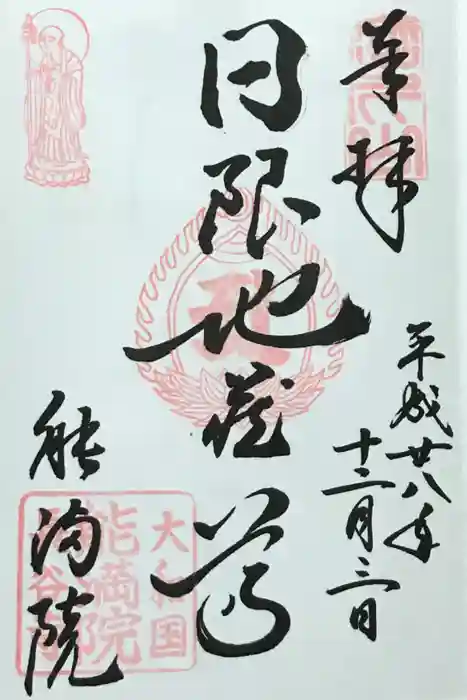 奉拝
平成廿八年
十二月三日
日限地蔵尊
能満院
大和国
能満院